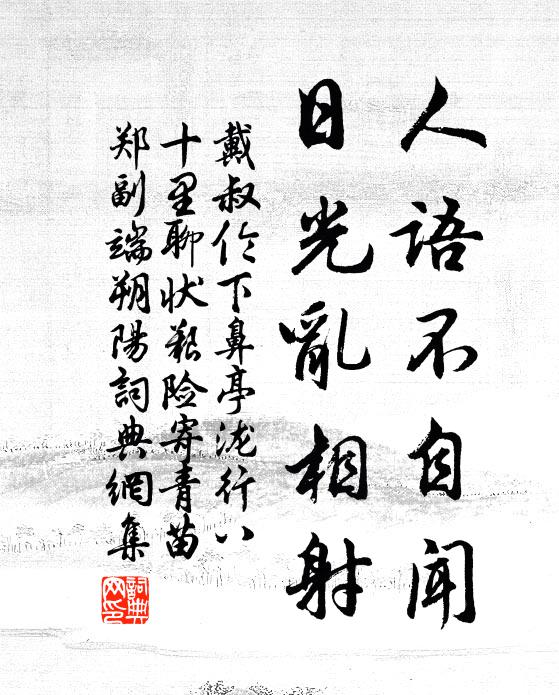 人語不自聞
日光亂相射
戴叔伦下鼻亭泷行八
十里聊状艰险寄青苗
郑副端朔陽詞典網集
詞典
网印